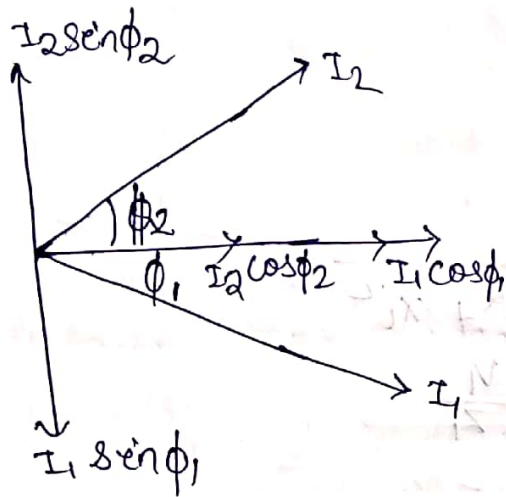 I₂sinϕ₂
I₂
ϕ₂
ϕ₁ I₂cosϕ₂ I₁cosϕ₁
I₁
I₁ sinϕ₁